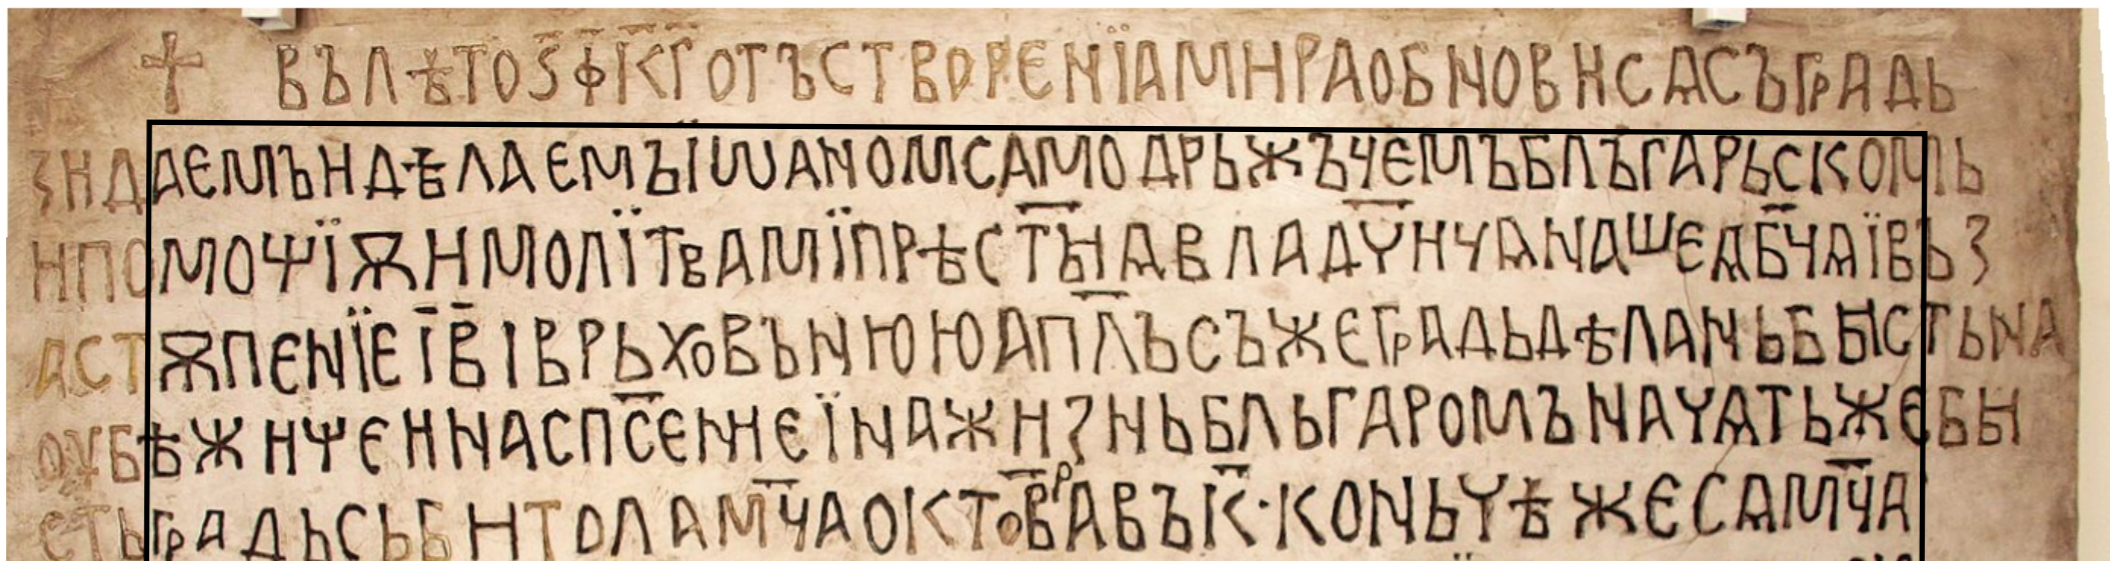 † ВЪЛѢТОЅФК҃ГОТЪСТВОРЕНЇАМНРАОБНОВНСѦСЪГРАДЬ
ЗНДАЕМЪНДѢЛАЕМЪІѠАНОМСАМОДРЬЖЪЧЕМЪБЛЪГАРЬСКОМЬ
НПОМОЩЇѪНМОЛЇТВАМЇПРѢСТ҃ЫѦВЛАДѴ҃НЧѦНАШЕѦБ҃ЧАЇВЪЗ
ѦСТѪПЕНЇЕІ҃В҃ІВРЬХОВЪНЮЮАП҃ЛЪСЪЖЕГРАДЬДѢЛАНЬББЫСТЬНА
ОУБѢЖНЩЕННАСПС҃ЕННЕЇНАЖНЗНЬБЛЬГАРОМЪНАЧѦТЬЖЕБЫ
СТЬГРАДЬСЬБНТОЛАМ҃ЧАОКТОВ҃РАВЪК҃·КОНЬЧѢЖЕСѦМ҃ЧА